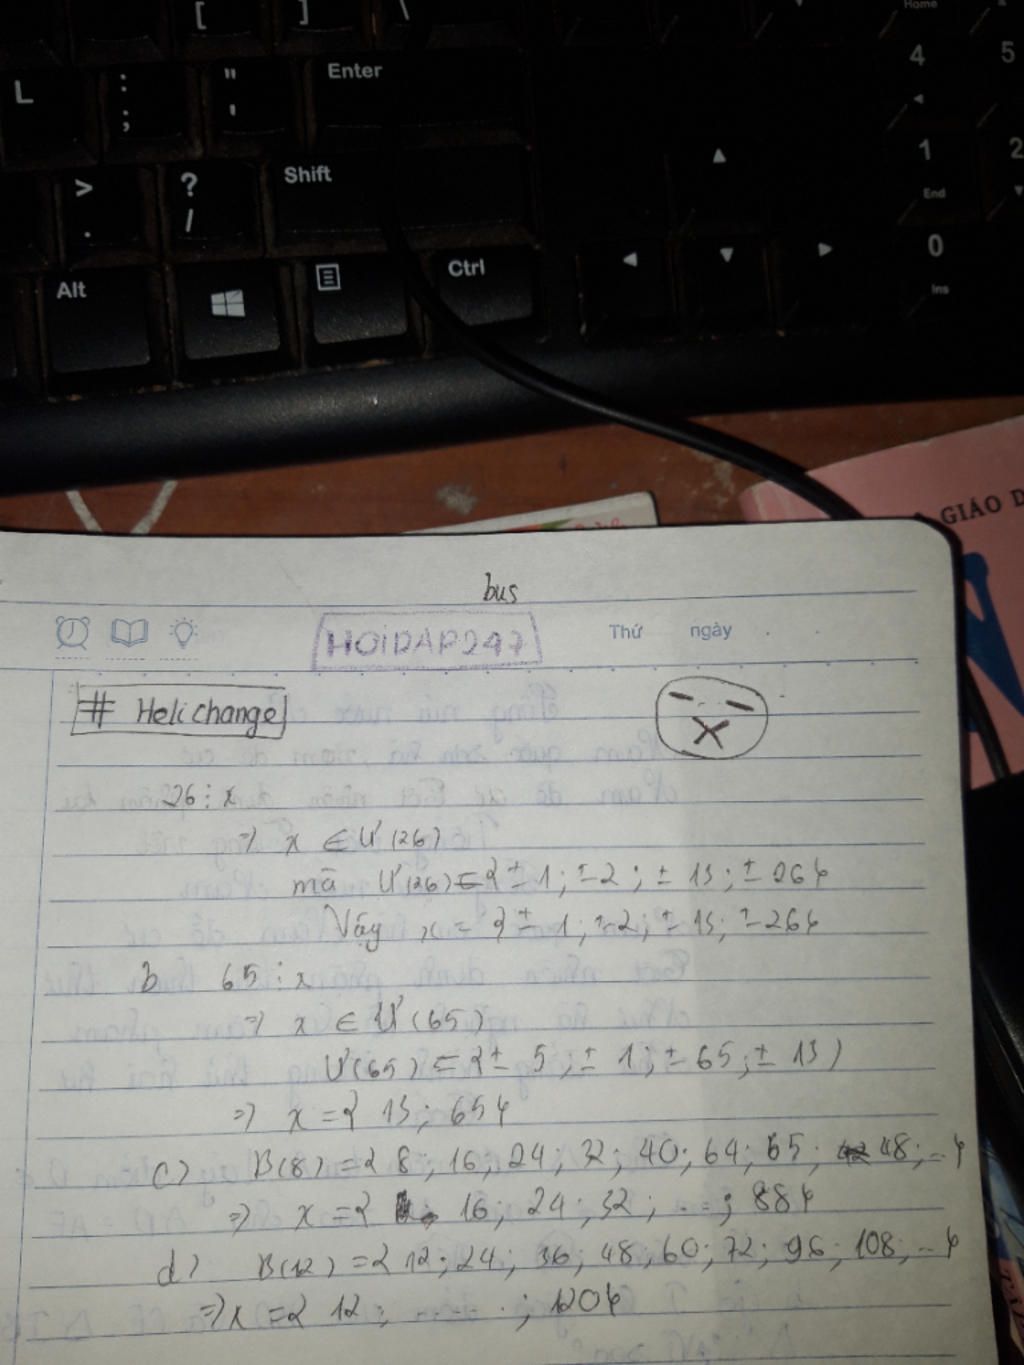 [ ] \
Home
L : ; " ' Enter 4 5
> . ? / Shift 1 2
End
Alt Ctrl 0
Ins
GIÁO D
bus
HOIDAP247 Thứ ngày
# Helichange
26 ⋮ x
=> x ∈ Ư(26)
mã Ư(26) = {± 1; ± 2; ± 13; ± 26}
Vậy x = {± 1; ± 2; ± 13; ± 26}
b 65 ⋮ x
=> x ∈ Ư(65)
Ư(65) = {± 5; ± 1; ± 65; ± 13)
=> x = { 13; 65}
c) B(8) = { 8; 16; 24; 32; 40; 64; 65; 48; ...}
=> x = { 16; 24; 32; ...; 88}
d) B(12) = { 12; 24; 36; 48; 60; 72; 96; 108; ...}
=> x = { 12; ...; 120}